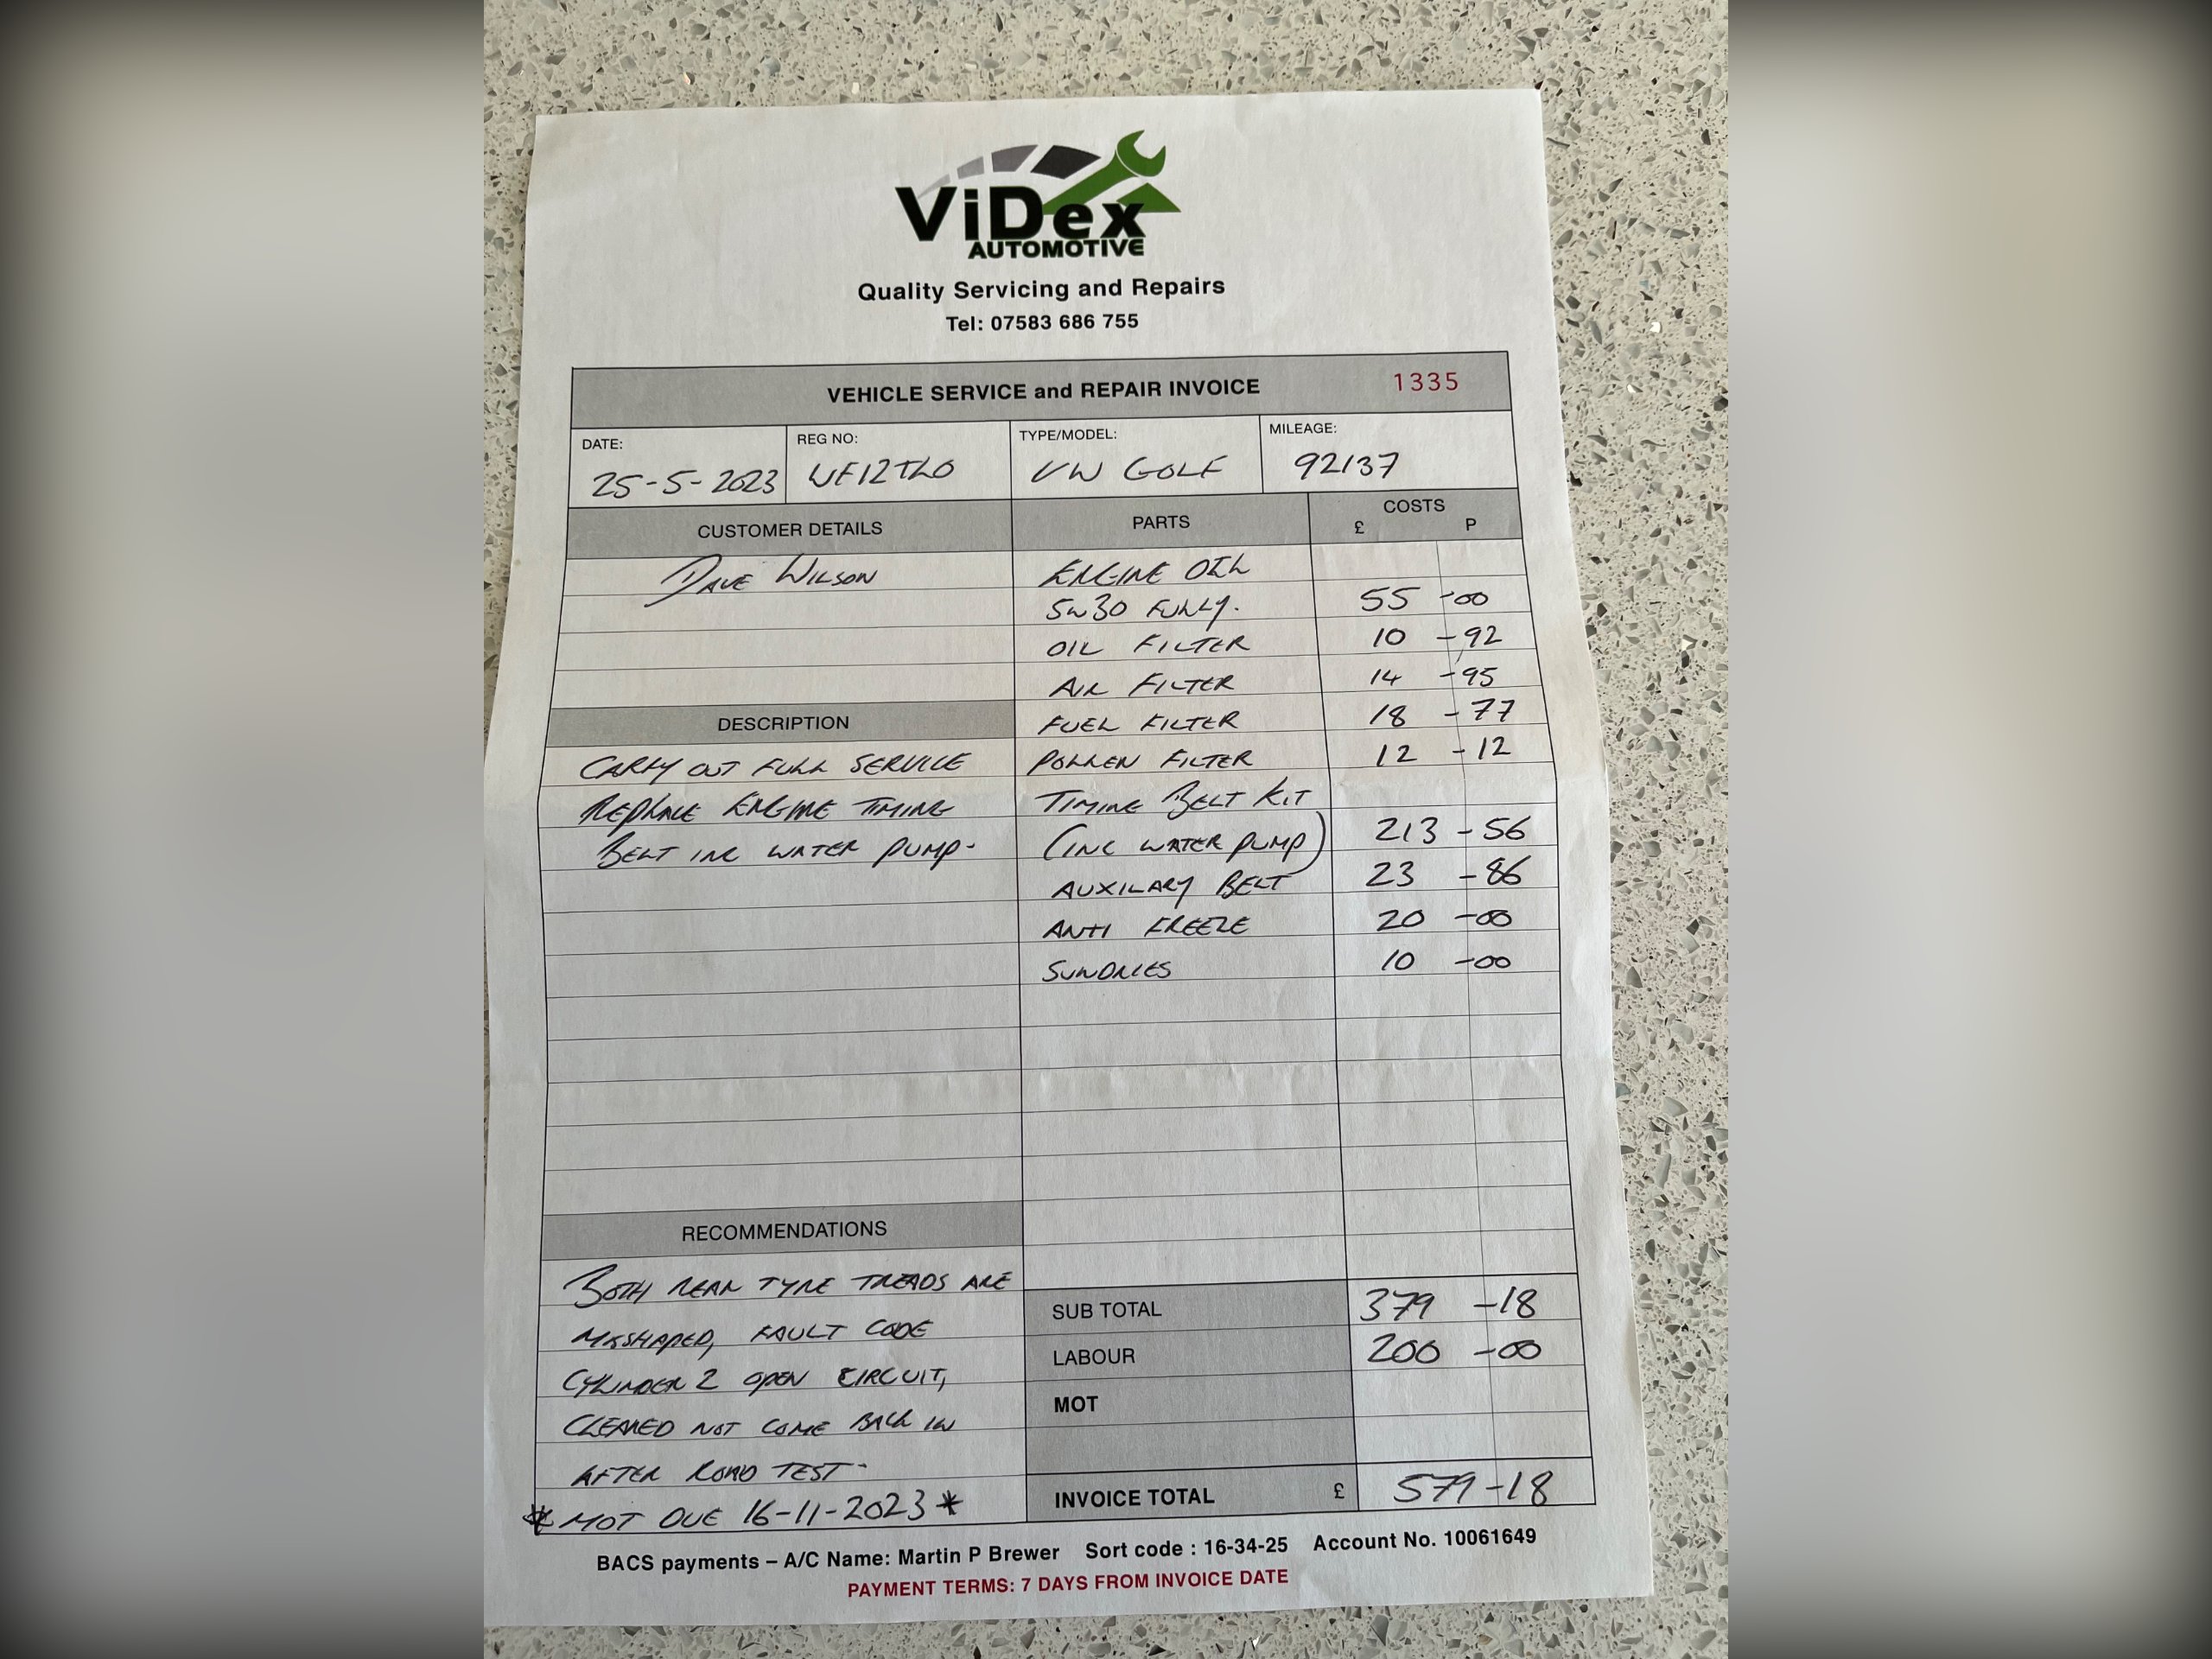 ViDex
AUTOMOTIVE
Quality Servicing and Repairs
Tel: 07583 686 755
VEHICLE SERVICE and REPAIR INVOICE 1335
DATE: REG NO: TYPE/MODEL: MILEAGE:
25-5-2023 WF12TLO VW GOLF 92137
CUSTOMER DETAILS PARTS COSTS
£ P
DAVE WILSON ENGINE OIL
5W30 FULLY. 55 -00
OIL FILTER 10 -92
AIR FILTER 14 -95
DESCRIPTION FUEL FILTER 18 -77
CARRY OUT FULL SERVICE POLLEN FILTER 12 -12
REPLACE ENGINE TIMING TIMING BELT KIT
BELT INC WATER PUMP- (INC WATER PUMP) 213 -56
AUXILARY BELT 23 -86
ANTI FREEZE 20 -00
SUNDRIES 10 -00
RECOMMENDATIONS
BOTH REAR TYRE TREADS ARE
SUB TOTAL 379 -18
MISSHAPED, FAULT CODE
LABOUR 200 -00
CYLINDER 2 OPEN CIRCUIT,
MOT
CLEARED NOT COME BACK IN
AFTER ROAD TEST-
INVOICE TOTAL £ 579-18
* MOT DUE 16-11-2023 *
BACS payments – A/C Name: Martin P Brewer Sort code : 16-34-25 Account No. 10061649
PAYMENT TERMS: 7 DAYS FROM INVOICE DATE